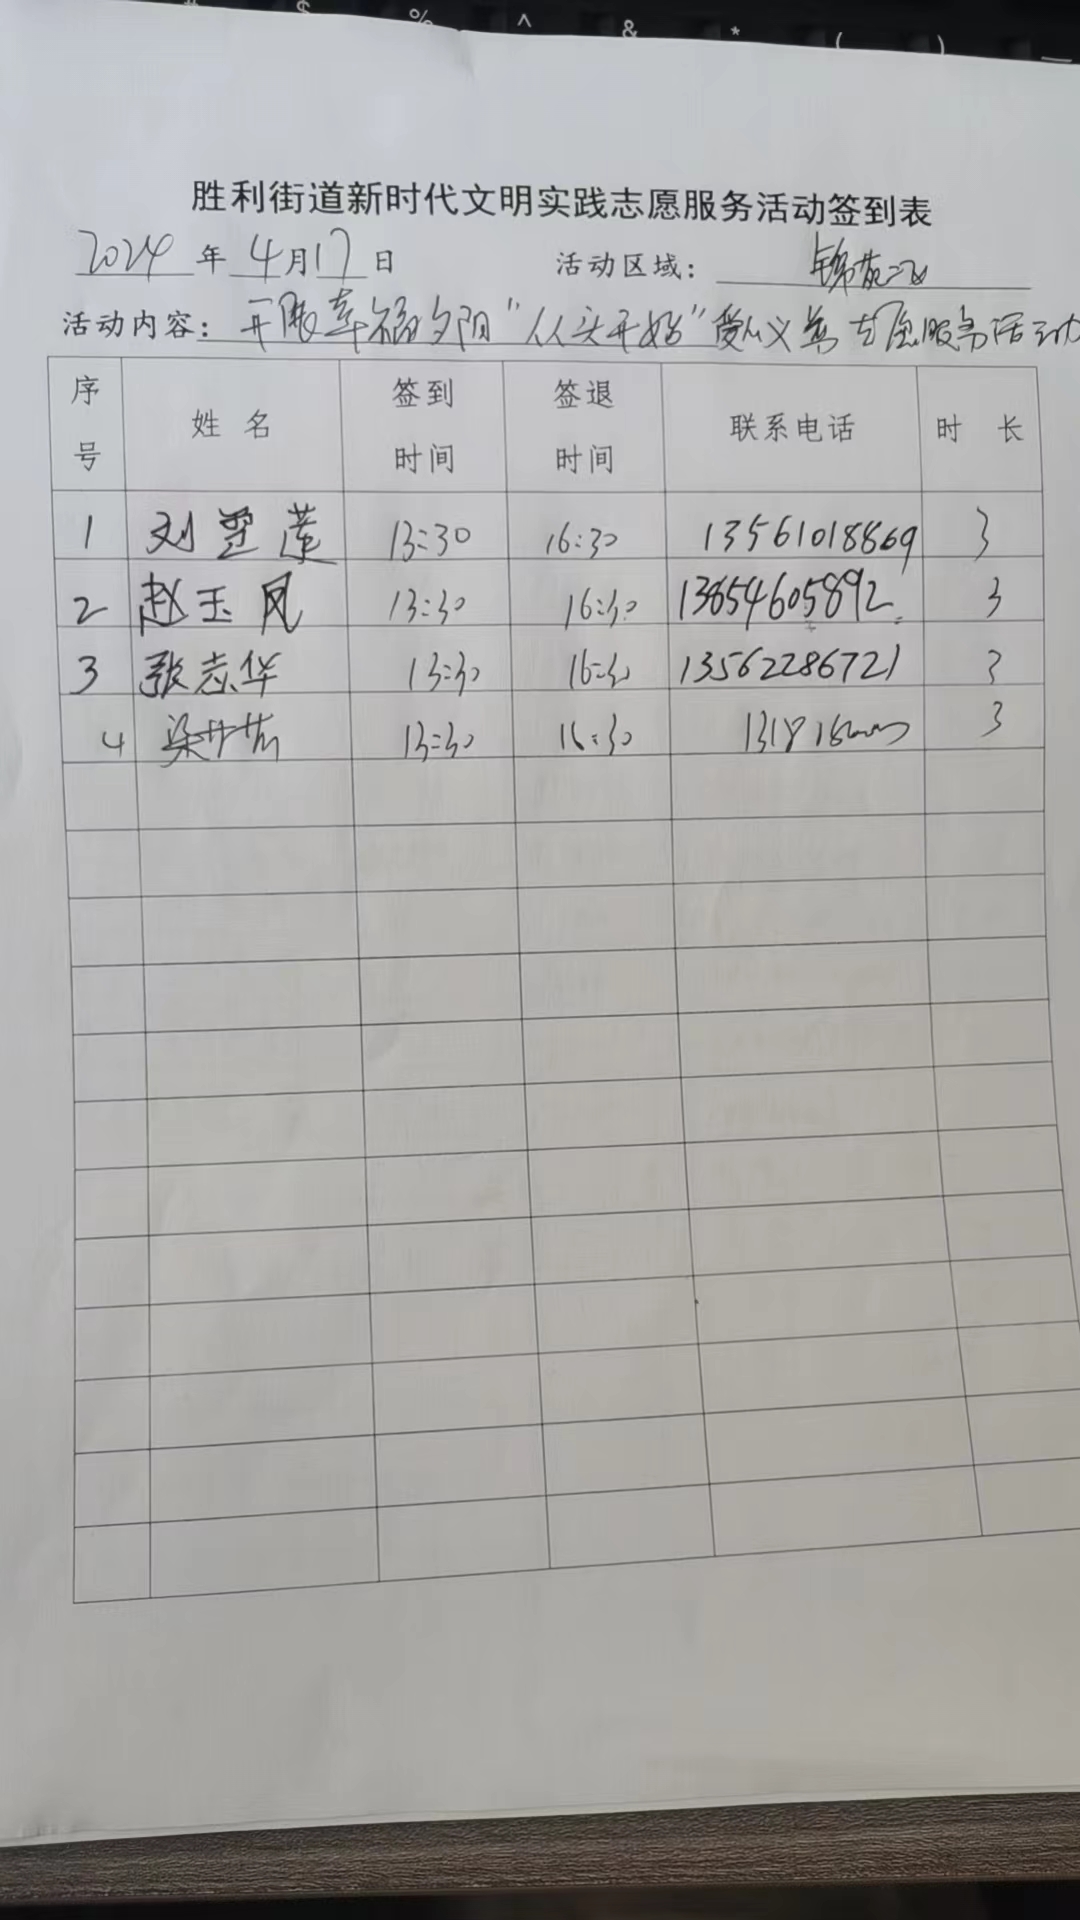 胜利街道新时代文明实践志愿服务活动签到表
2024年4月17日 活动区域：锦苑二区
活动内容：开展幸福夕阳“从头开始”爱心义剪志愿服务活动
序号 姓名 签到时间 签退时间 联系电话 时长
1 刘 莲 13:30 16:30 13561018869 3
2 赵玉凤 13:30 16:30 13654605892 3
3 张志华 13:30 16:30 13562286721 3
4 梁 13:30 16:30 3